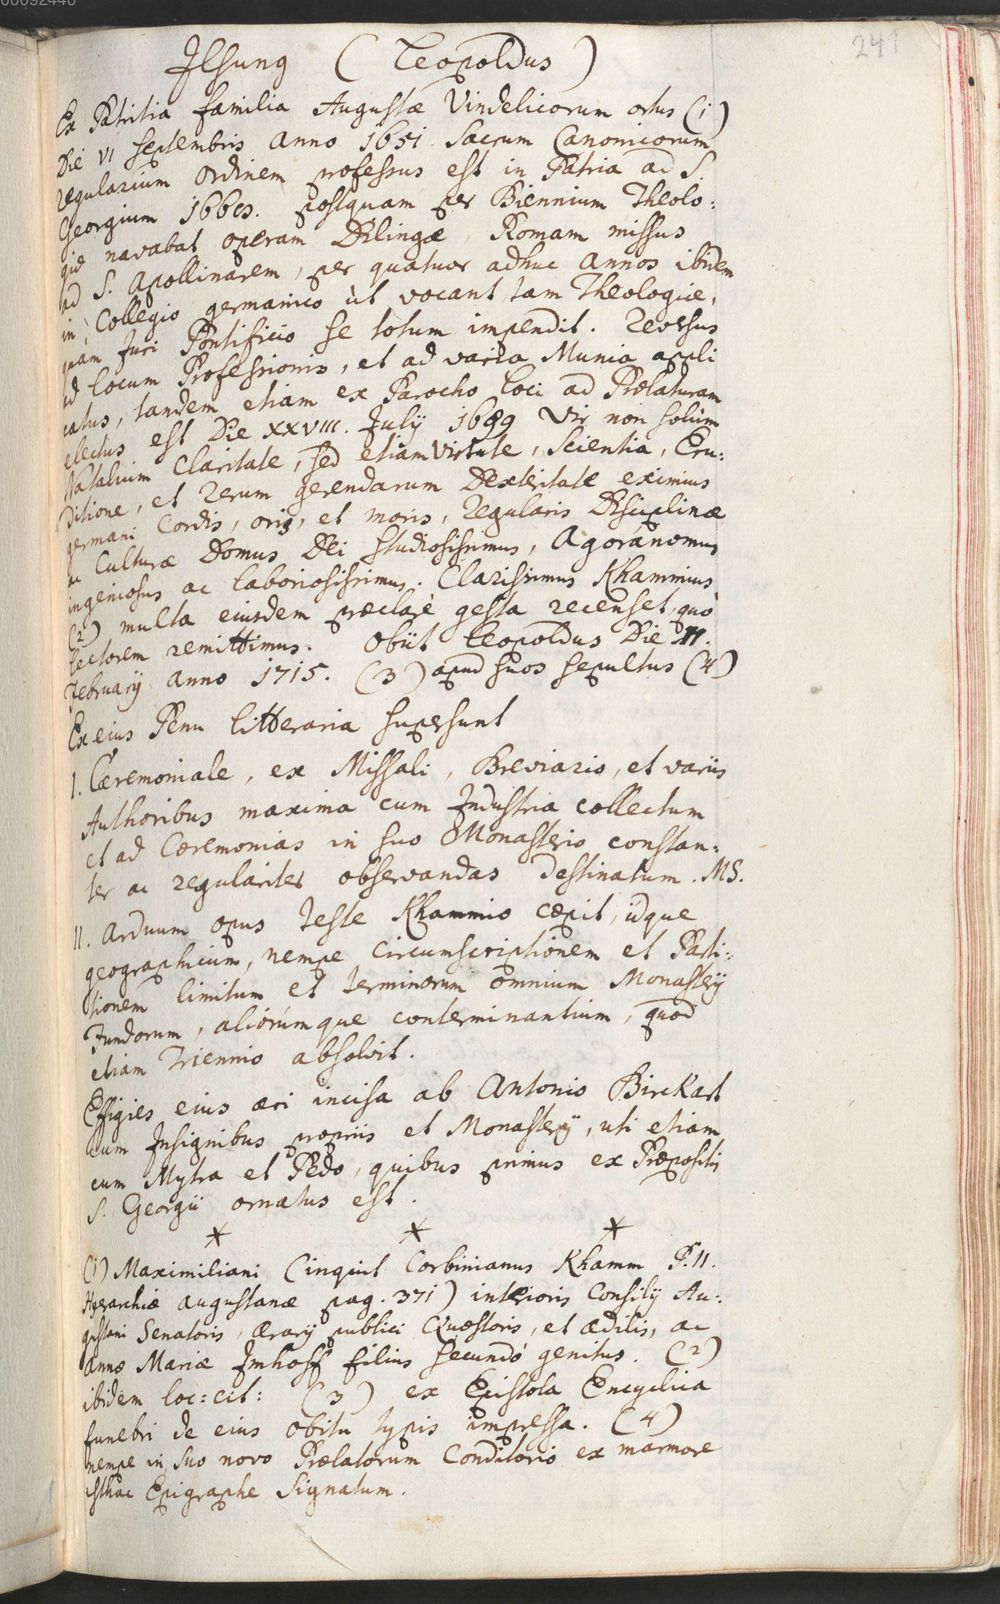 00092440
241
Ilsung ( Leopoldus )
Ex Patritia familia Augustæ Vindelicorum ortus (1)
Die VI Septembris Anno 1651. Sacrum Canonicorum
regularium Ordinem professus est in Patria ad S.
Georgium postquam per Biennium Theolo:
giæ navabat operam Dilingæ, Romam missus
ad S. Apollinarem, per quatuor adhuc Annos ibidem
in Collegio germanico ùt vocant tam Theologiæ,
quàm Juri Pontificio se totum impendit. Reversus
ad locum Professionis, et ad varia Munia appli
catus, tandem etiam ex Parocho loci ad Prælaturam
electus est Die XXVIII. July 1699 Vir non solùm
Natalium Claritate, sed etiam Virtute, Scientia, Eru:
ditione, et rerum gerendarum Dexteritate eximius
germani Cordis, oris, et moris, regularis Disciplinæ
ac Culturæ Domus Dei studiosissimus, Agoranomus
ingeniosus ac laboriosissimus. Clarissimus Khammius
(2) multa eiusdem præclarè gesta recenset, quò
lectorem remittimus. Obiit Leopoldus Die II.
February anno 1715. (3) apud suos sepultus (4)
Ex eius Penu litteraria supersunt
I. Cæremoniale, ex Missali, Breviario, et variis
Authoribus maxima cum Industria collectum
et ad Cæremonias in suo Monasterio constan:
ter ac regulariter observandas destinatum. MS.
II. Arduum opus teste Khammio cæpit, idque
geographicum, nempe circumscriptionem et Parti:
tionem limitum et terminorum omnium Monastery
Fundorum, aliorumque conterminantium, quod
etiam Triennio absolvit.
Effigies eius æri incisa ab Antonio Birckart
cum Insignibus propriis et Monastery, uti etiam
cum Mytra et Pedo, quibus primus ex Præpositis
S. Georgii ornatus est.
* * *
(1) Maximiliani (inquit Corbinianus Khamm P. II.
Hyerarchiæ augustanæ pag. 371) interioris Consily Au:
gustani Senatoris, ærary publici Quæstoris, et ædilis, ac
Annæ Mariæ Imhoff filius secundò genitus. (2)
ibidem loc: cit: (3) ex Epistola Encyclica
funebri de eius obitu typis impressa. (4)
nempe in suo novo Prælatorum Conditorio ex marmore
isthac Epigraphe signatum.